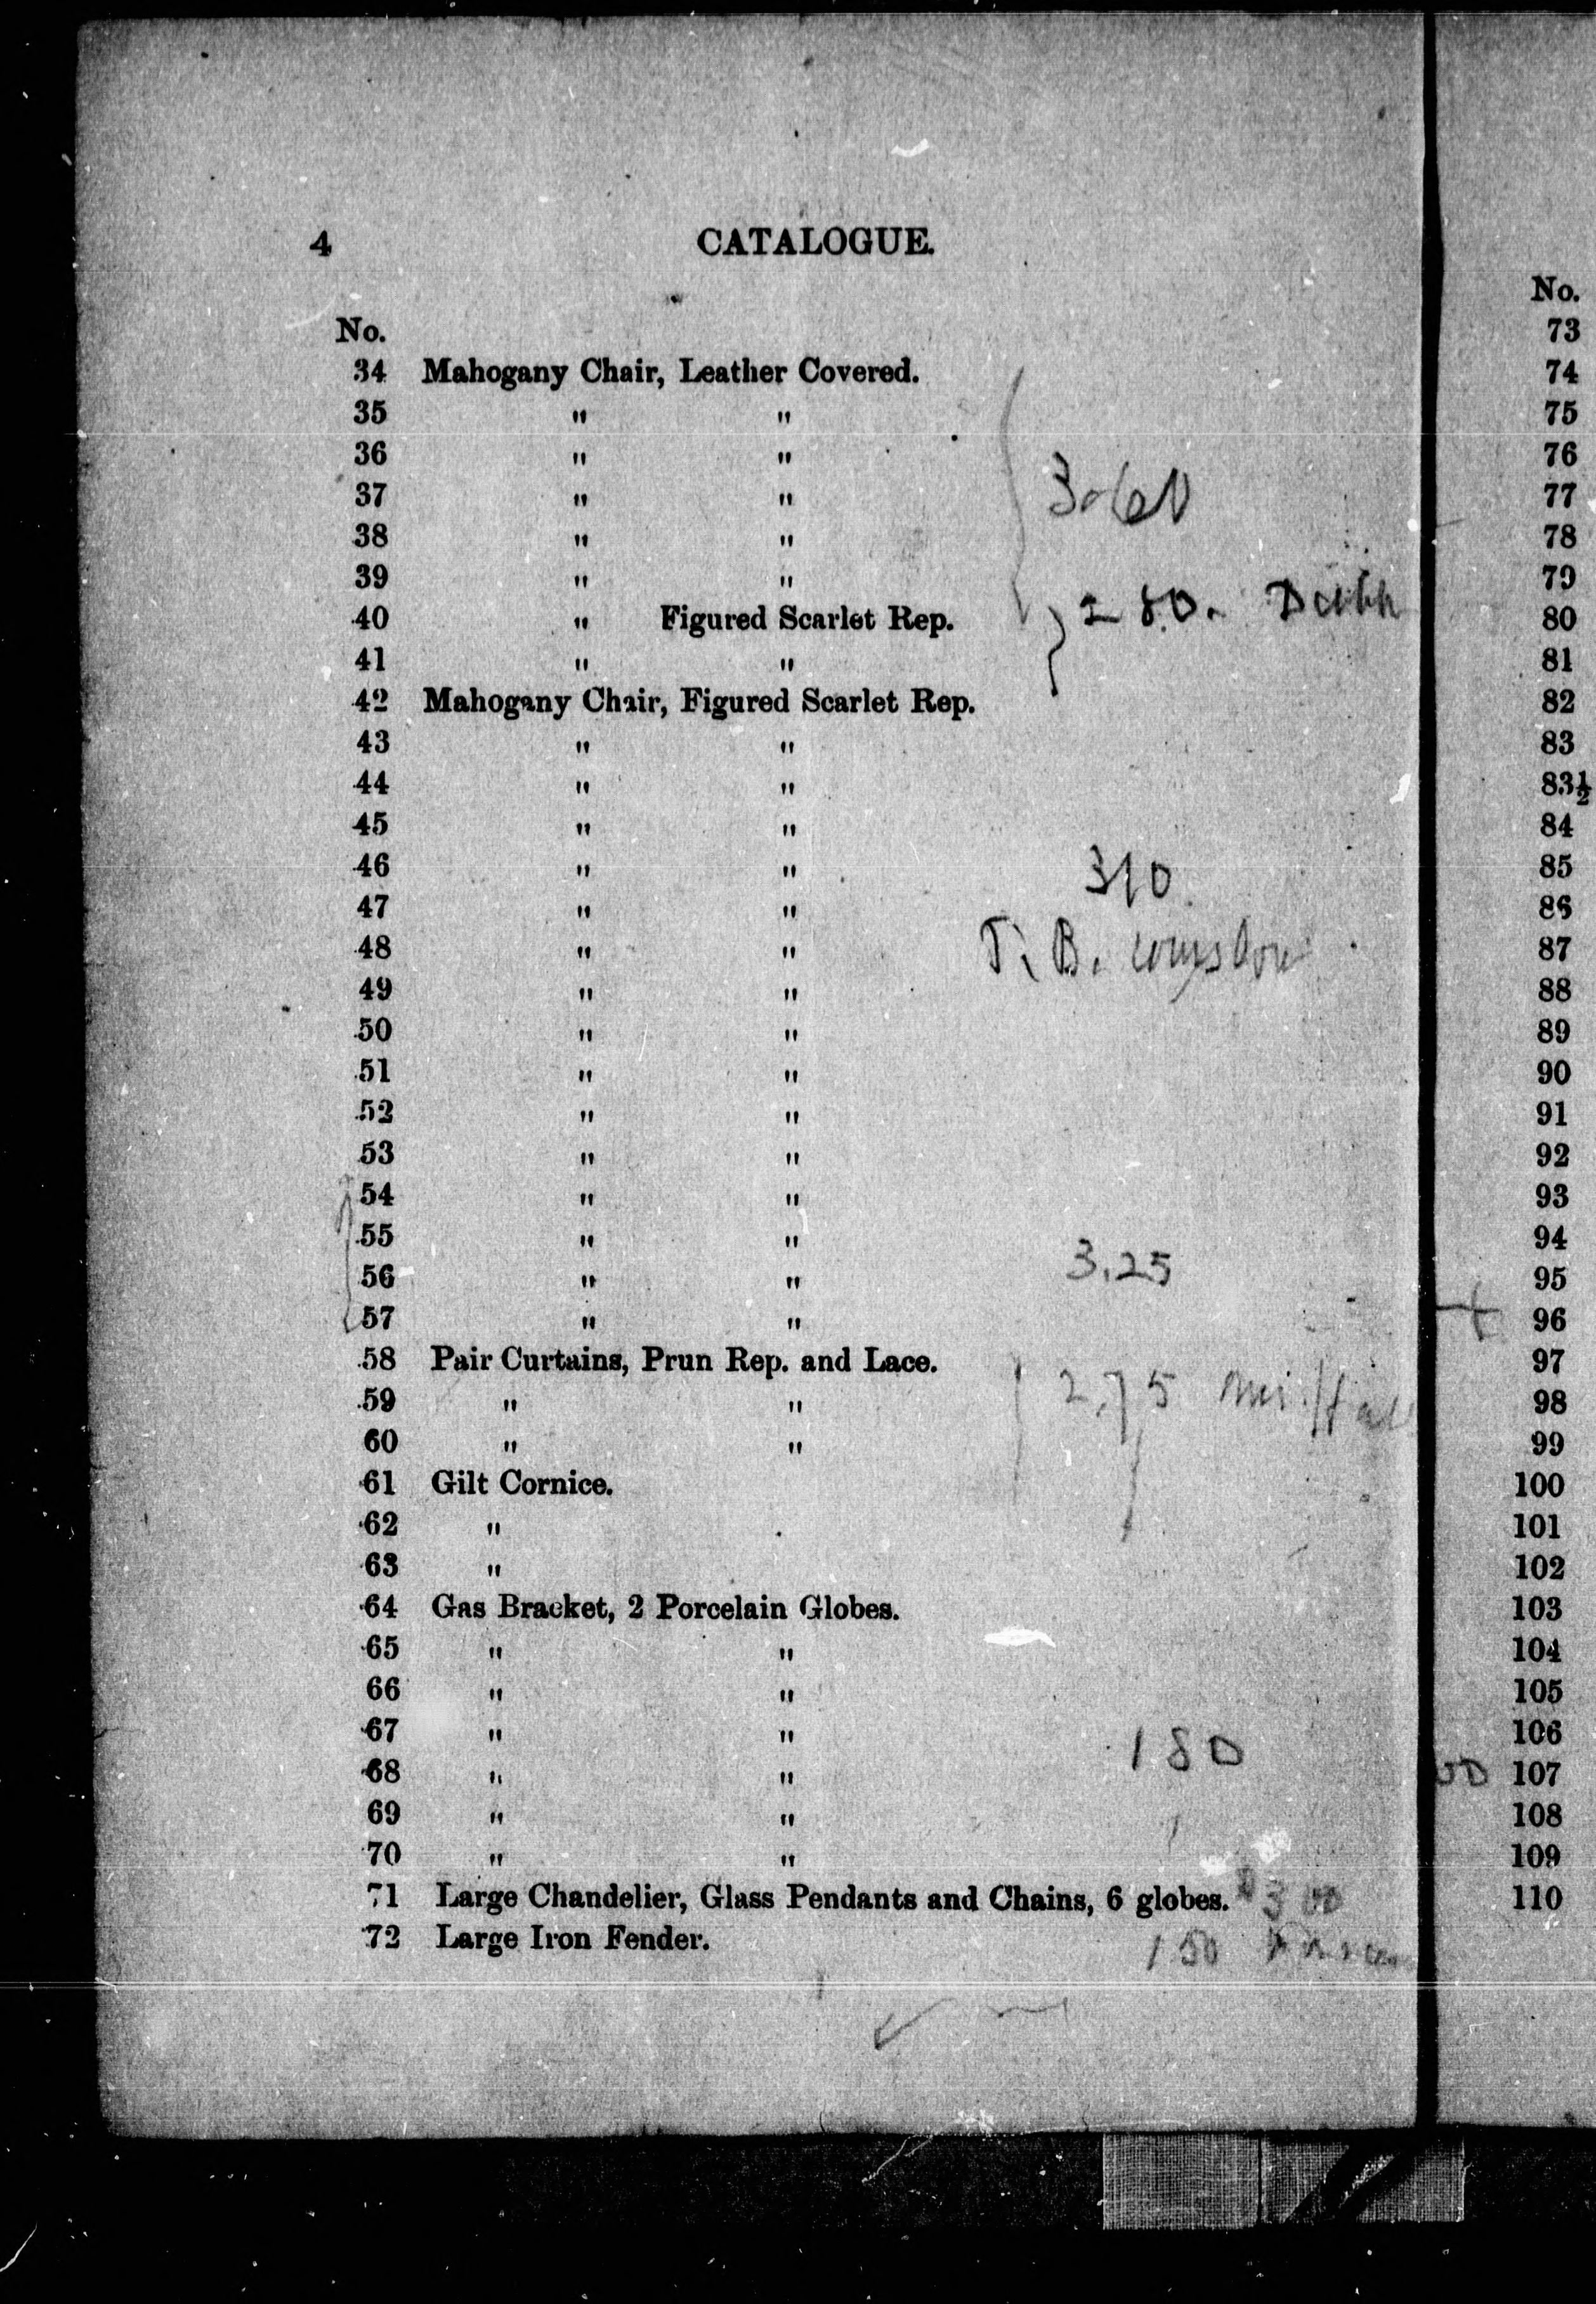 4 CATALOGUE.
No.
34 Mahogany Chair, Leather Covered.
35 " "
36 " "
37 " "
38 " "
39 " "
40 " Figured Scarlet Rep. 280.
41 " "
42 Mahogany Chair, Figured Scarlet Rep.
43 " "
44 " "
45 " "
46 " " 310
47 " "
48 " " T. B.
49 " "
50 " "
51 " "
52 " "
53 " "
54 " "
55 " "
56 " " 3.25
57 " "
58 Pair Curtains, Prun Rep. and Lace.
59 " " 2.75
60 " "
61 Gilt Cornice.
62 "
63 "
64 Gas Bracket, 2 Porcelain Globes.
65 " "
66 " "
67 " " 180
68 " "
69 " "
70 " "
71 Large Chandelier, Glass Pendants and Chains, 6 globes. 300
72 Large Iron Fender. 150
No.
73
74
75
76
77
78
79
80
81
82
83
83½
84
85
86
87
88
89
90
91
92
93
94
95
96
97
98
99
100
101
102
103
104
105
106
107
108
109
110